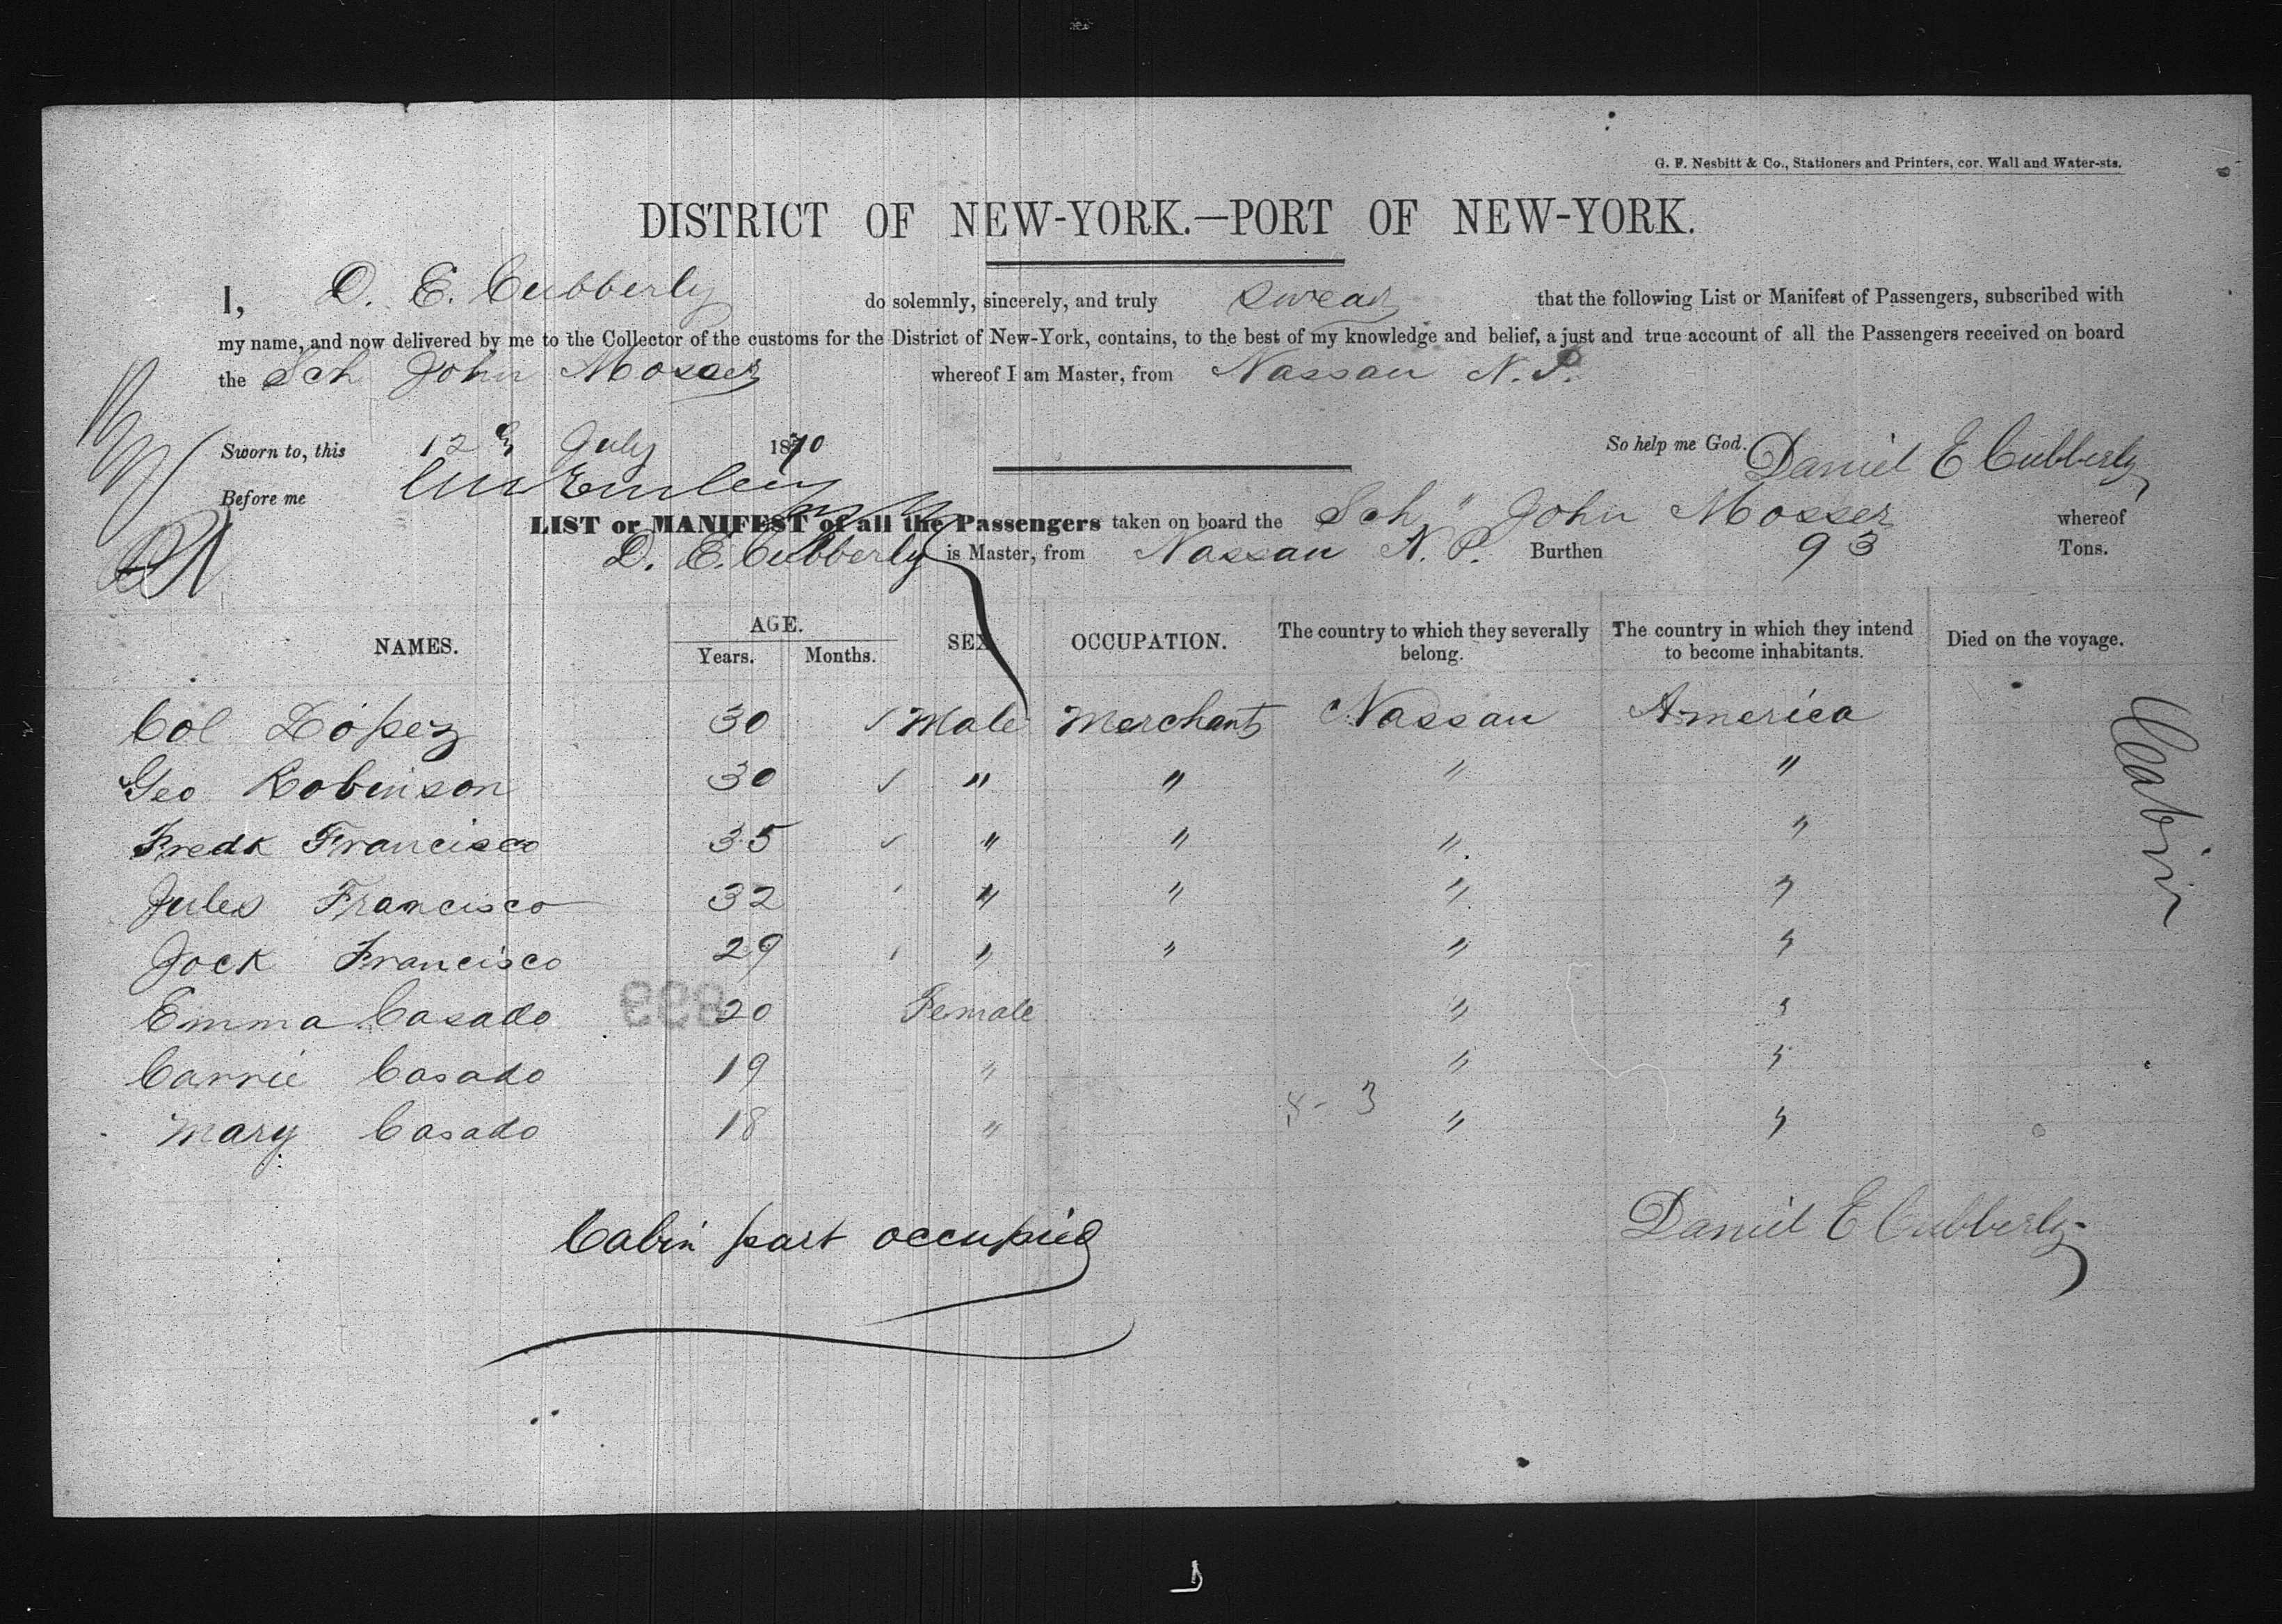 G. F. Nesbitt & Co., Stationers and Printers, cor. Wall and Water-sts.
DISTRICT OF NEW-YORK.—PORT OF NEW-YORK.
I, D. E. Cubberly do solemnly, sincerely, and truly swear that the following List or Manifest of Passengers, subscribed with
my name, and now delivered by me to the Collector of the customs for the District of New-York, contains, to the best of my knowledge and belief, a just and true account of all the Passengers received on board
the Sch John Mosser whereof I am Master, from Nassau N. P.
Sworn to, this 12th July 1870 So help me God. Daniel E Cubberly
Before me
LIST or MANIFEST of all the Passengers taken on board the Sch " John Mosser whereof
D. E. Cubberly is Master, from Nassau N. P. Burthen 93 Tons.
NAMES. AGE. Years. Months. SEX OCCUPATION. The country to which they severally belong. The country in which they intend to become inhabitants. Died on the voyage.
Col Lopez 30 Male Merchant Nassau America
Geo Robinson 30 " " " "
Fredk Francisco 35 " " " "
Jules Francisco 32 " " " "
Jock Francisco 29 " " " "
Emma Casado 20 Female " "
Carrie Casado 19 " " "
Mary Casado 18 " " "
8-3
Cabin
Cabin part occupied
Daniel E Cubberly